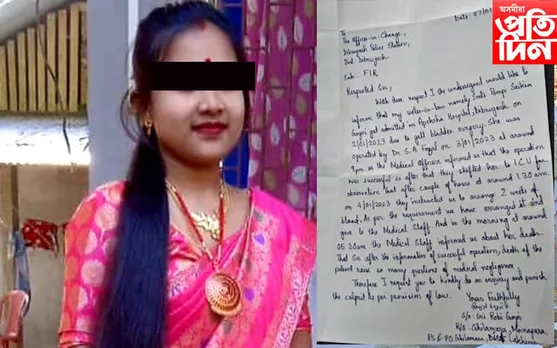 অসমীয়া
প্রতি
দিন
Date: 07/01
To
The Officer-in-Charge,
Dibrugarh Police Station,
Dist Dibrugarh
Sub: FIR
Respected Sir,
With due respect I the undersigned would like to
inform that my sister-in-law namely
Gogoi get admitted in Hospital, Dibrugarh on
2/01/2023 due to gall bladder surgery. She was
operated by Dr. S.A. on 3/01/2023 at around
9pm as the Medical Officers informed us that the operation
was successful so after that they shifted her to I.C.U for
observation but after couple of hours at around 1:30 am
on 4/01/2023 they instructed us to arrange 2 units of
blood. As per the requirement we have arranged it and
gave to the Medical Staff. And in the morning at around
05.30am the Medical Staff informed us about her death.
That Sir after the information of successful operation, death of the
patient raise so many questions of medical negligence.
Therefore I request you to kindly do an enquiry and punish
the culprit as per provision of law.
Yours Faithfully
S/o- Sri Robi Gogoi
R/o-
PS & PO